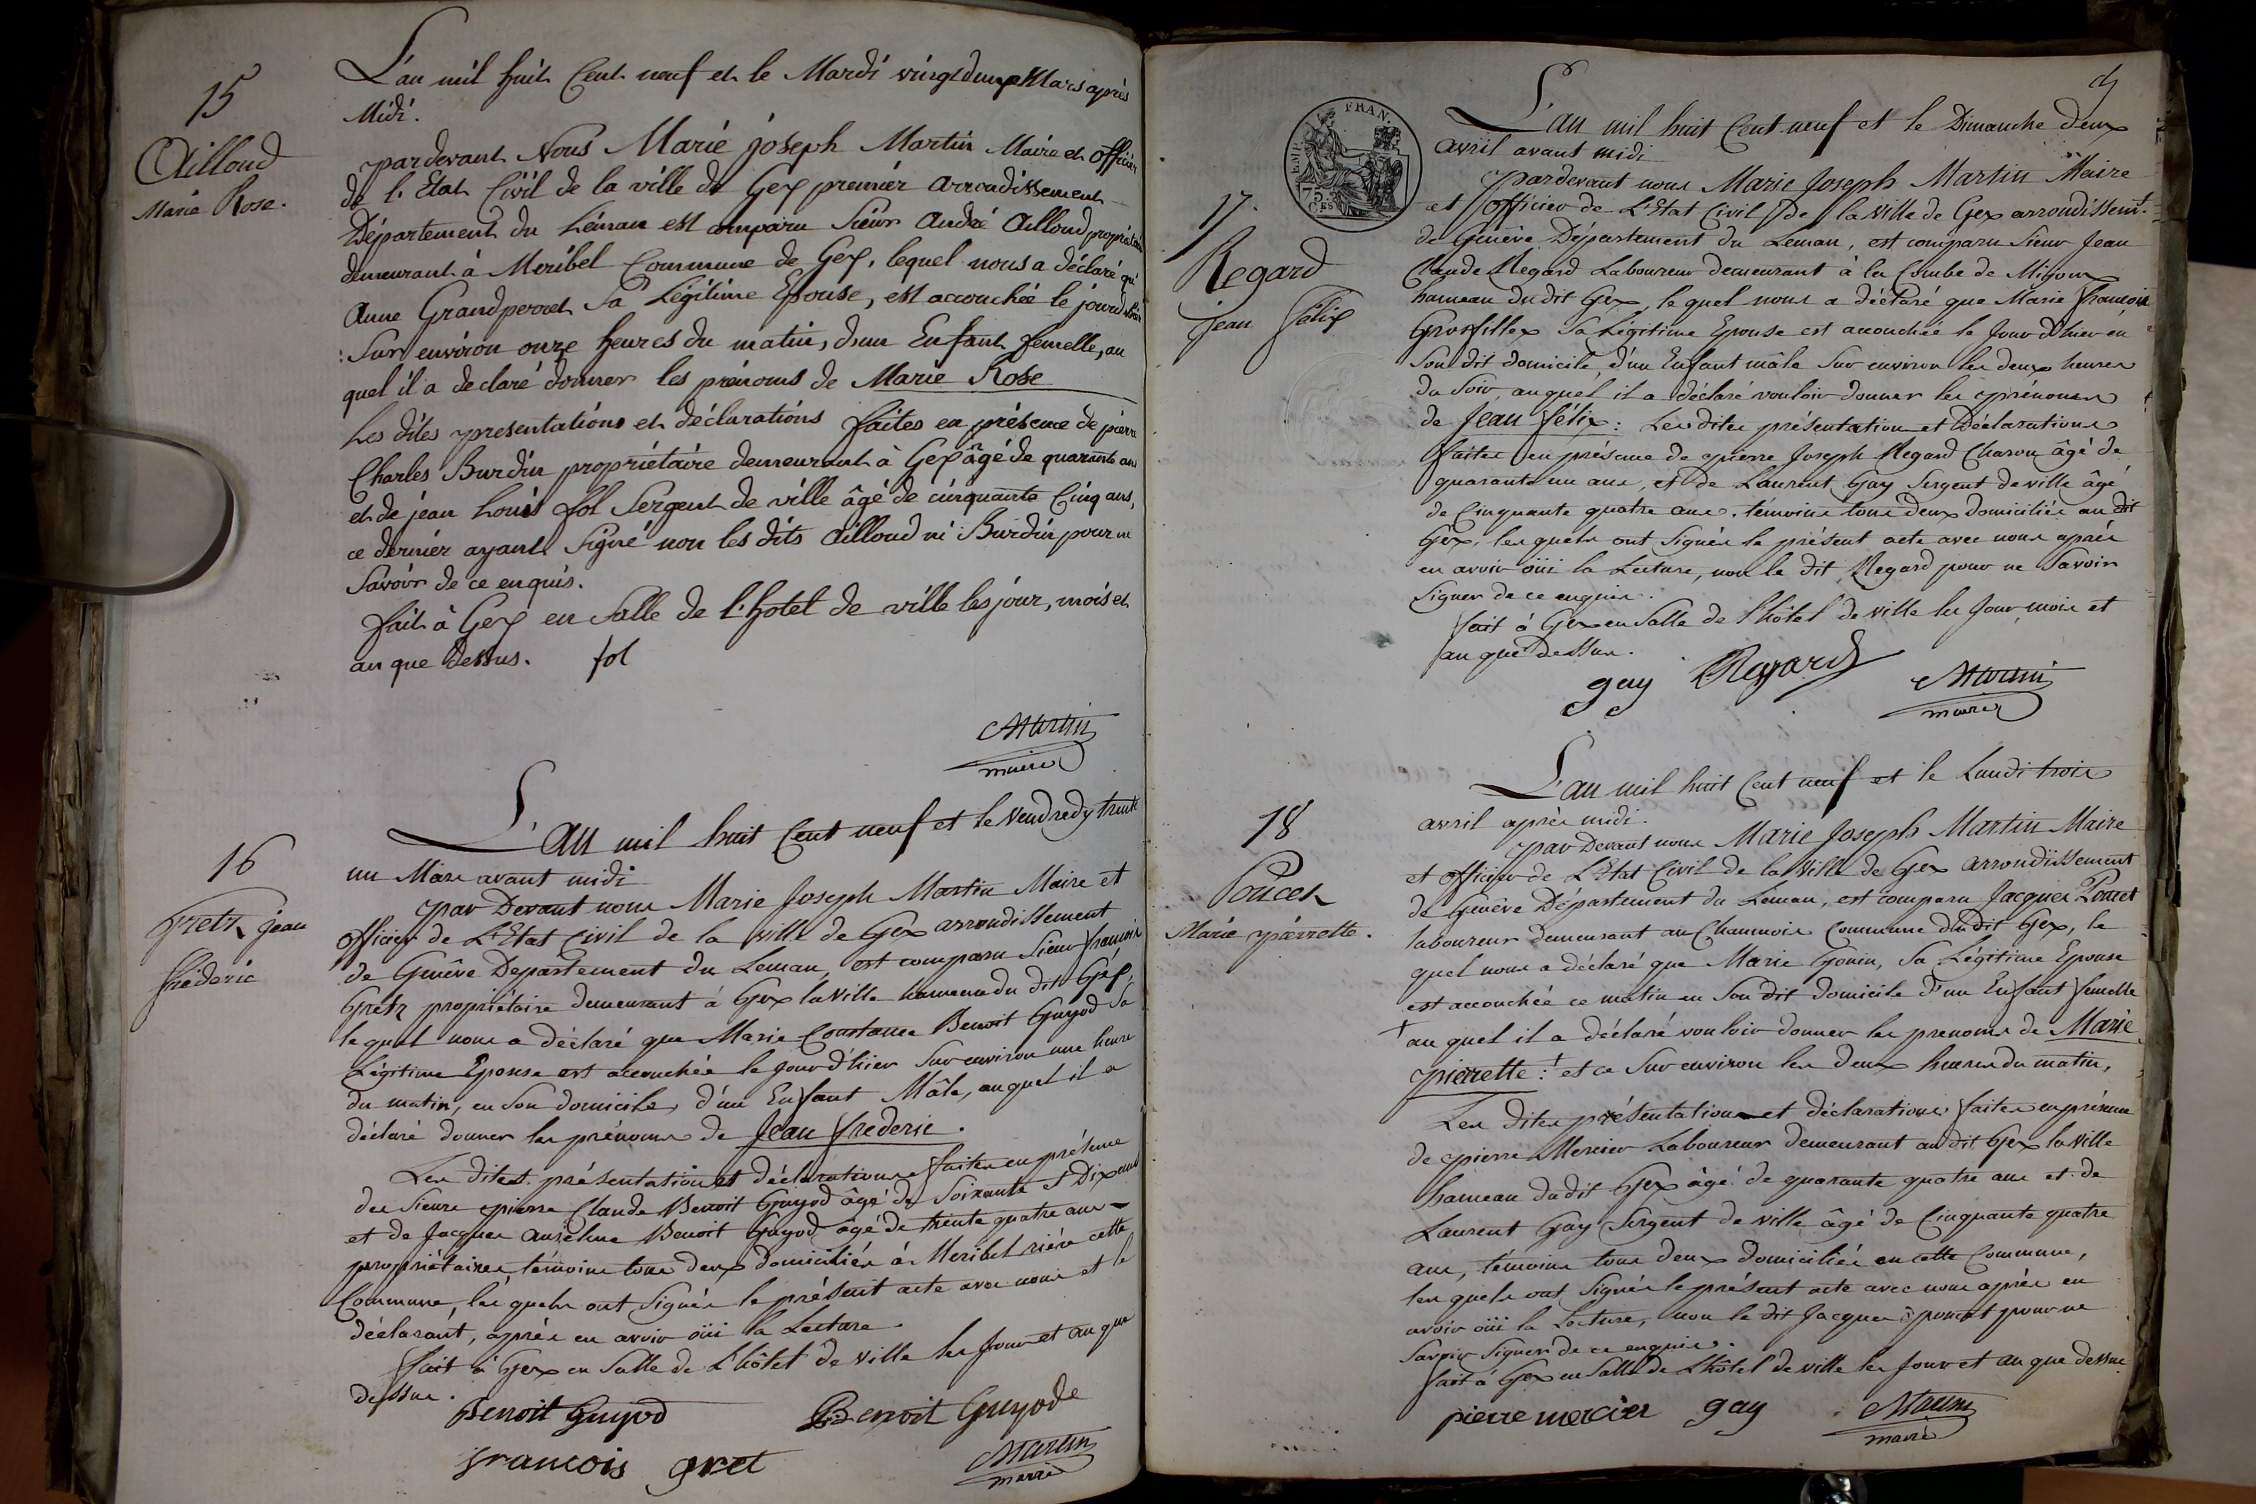 15
Ailloud
Marie Rose.
L'an mil huit Cent neuf et le Mardi vingt deux Mars après
Midi.
pardevant Nous Marie joseph Martin Maire et officier
de l'Etat Civil de la ville de Gex premier arrondissement
Département du Léman est comparu Sieur André Ailloud propriétaire
demeurant à Meribel Commune de Gex, lequel nous a déclaré qu'
Anne Grandperret Sa Légitime Epouse, est accouchée le jour d'hier
Sur environ onze heures du matin, d'un Enfant femelle, au
quel il a declaré donner les prénoms de Marie Rose
Les dites presentations et déclarations faites en présence de pierre
Charles Burdin propriétaire demeurant à Gex âgé de quarante ans
et de jean Louis fol Sergent de ville âgé de cinquante Cinq ans,
ce dernier ayant Signé non les dits Ailloud ni Burdin pour ne
Savoir de ce enquis.
fait à Gex en Salle de l'hotel de ville les jour, mois et
an que dessus. fol
Martin
maire
16
Gretz jean
frederic
L'an mil huit Cent neuf et le Vendredy trente
un Mars avant midi
par Devant nous Marie Joseph Martin Maire et
officier de L'Etat Civil de la ville de Gex arrondissement
de Genêve Departement du Leman, est comparu Sieur françois
Gretz propriétaire demeurant à Gex la Ville hameau du dit Gex,
lequel nous a déclaré que Marie Constance Benoit Guyod Sa
Légitime Epouse est accouchée le Jour d'hier Sur environ une heure
du matin, en Son domicile, d'un Enfant Mâle, auquel il a
déclaré donner les prénoms de Jean frederic.
Les dites présentation et déclarations faites en présence
des Sieurs pierre Claude Benoit Guyod âgé de Soixante & Dix ans
et de Jacques Anselme Benoit Guyod âgé de trente quatre ans
propriétaires, témoins tous deux domiciliés à Meribel rière cette
Commune, les quels ont Signés le présent acte avec nous et le
déclarant, après en avoir oüi la Lecture.
fait à Gex en Salle de L'hôtel de ville les Jour et an que
dessus.
Benoit Guyod Benoit Guyod
francois gret Martin
maire
17.
Regard
jean félix
L'an mil huit Cent neuf et le Dimanche deux
avril avant midi
pardevant nous Marie Joseph Martin Maire
et officier de L'Etat Civil de la ville de Gex arrondissemt.
de Genève Département du Leman, est comparu Sieur Jean
Claude Regard Laboureur demeurant à la Combe de Mijoux
hameau du dit Gex, lequel nous a déclaré que Marie françoise
Grosfillex Sa Légitime Epouse est accouchée le Jour d'hier en
Son dit domicile, d'un Enfant mâle Sur environ les deux heures
du Soir, auquel il a déclaré vouloir donner les prénoms
de Jean félix: Les dites présentation et Déclarations
faites en présence de pierre Joseph Regard Charon âgé de
quarante un ans, et de Laurent Gay Sergent de ville âgé
de Cinquante quatre ans. témoins tous deux domiciliés au dit
Gex, les quels ont Signés le présent acte avec nous après
en avoir oüi la Lecture, non le dit Regard pour ne Savoir
Signer de ce enquis.
fait à Gex en Salle de l'hôtel de ville les Jour, mois et
an que dessus.
gay Regard Martin
maire
18
Poncet
Marie pierrette.
L'an mil huit Cent neuf et le Lundi trois
avril après midi.
par Devant nous Marie Joseph Martin Maire
et officier de L'Etat Civil de la Ville de Gex arrondissement
de Genève Département du Leman, est comparu Jacques Poncet
laboureur demeurant au Chaumois Commune du dit Gex, le
quel nous a déclaré que Marie Gonin, Sa Légitime Epouse
est accouchée ce matin en Son dit domicile d'un Enfant femelle
+ au quel il a déclaré vouloir donner les prenoms de Marie
pierrette: + et ce Sur environ les Deux heures du matin,
Les dites présentation et déclarations faites en présence
de pierre Mercier Laboureur demeurant au dit Gex la Ville
hameau du dit Gex âgé de quarante quatre ans et de
Laurent Gay Sergent de ville âgé de Cinquante quatre
ans, témoins tous deux domiciliés en cette Commune,
les quels ont Signés le présent acte avec nous après en
avoir oüi la Lecture, non le dit Jacques poncet pour ne
Savoir Signer de ce enquis.
fait à Gex en Salle de L'hôtel de ville les Jour et an que dessus.
pierre mercier gay Martin
maire
EMP. FRAN.
75
CES